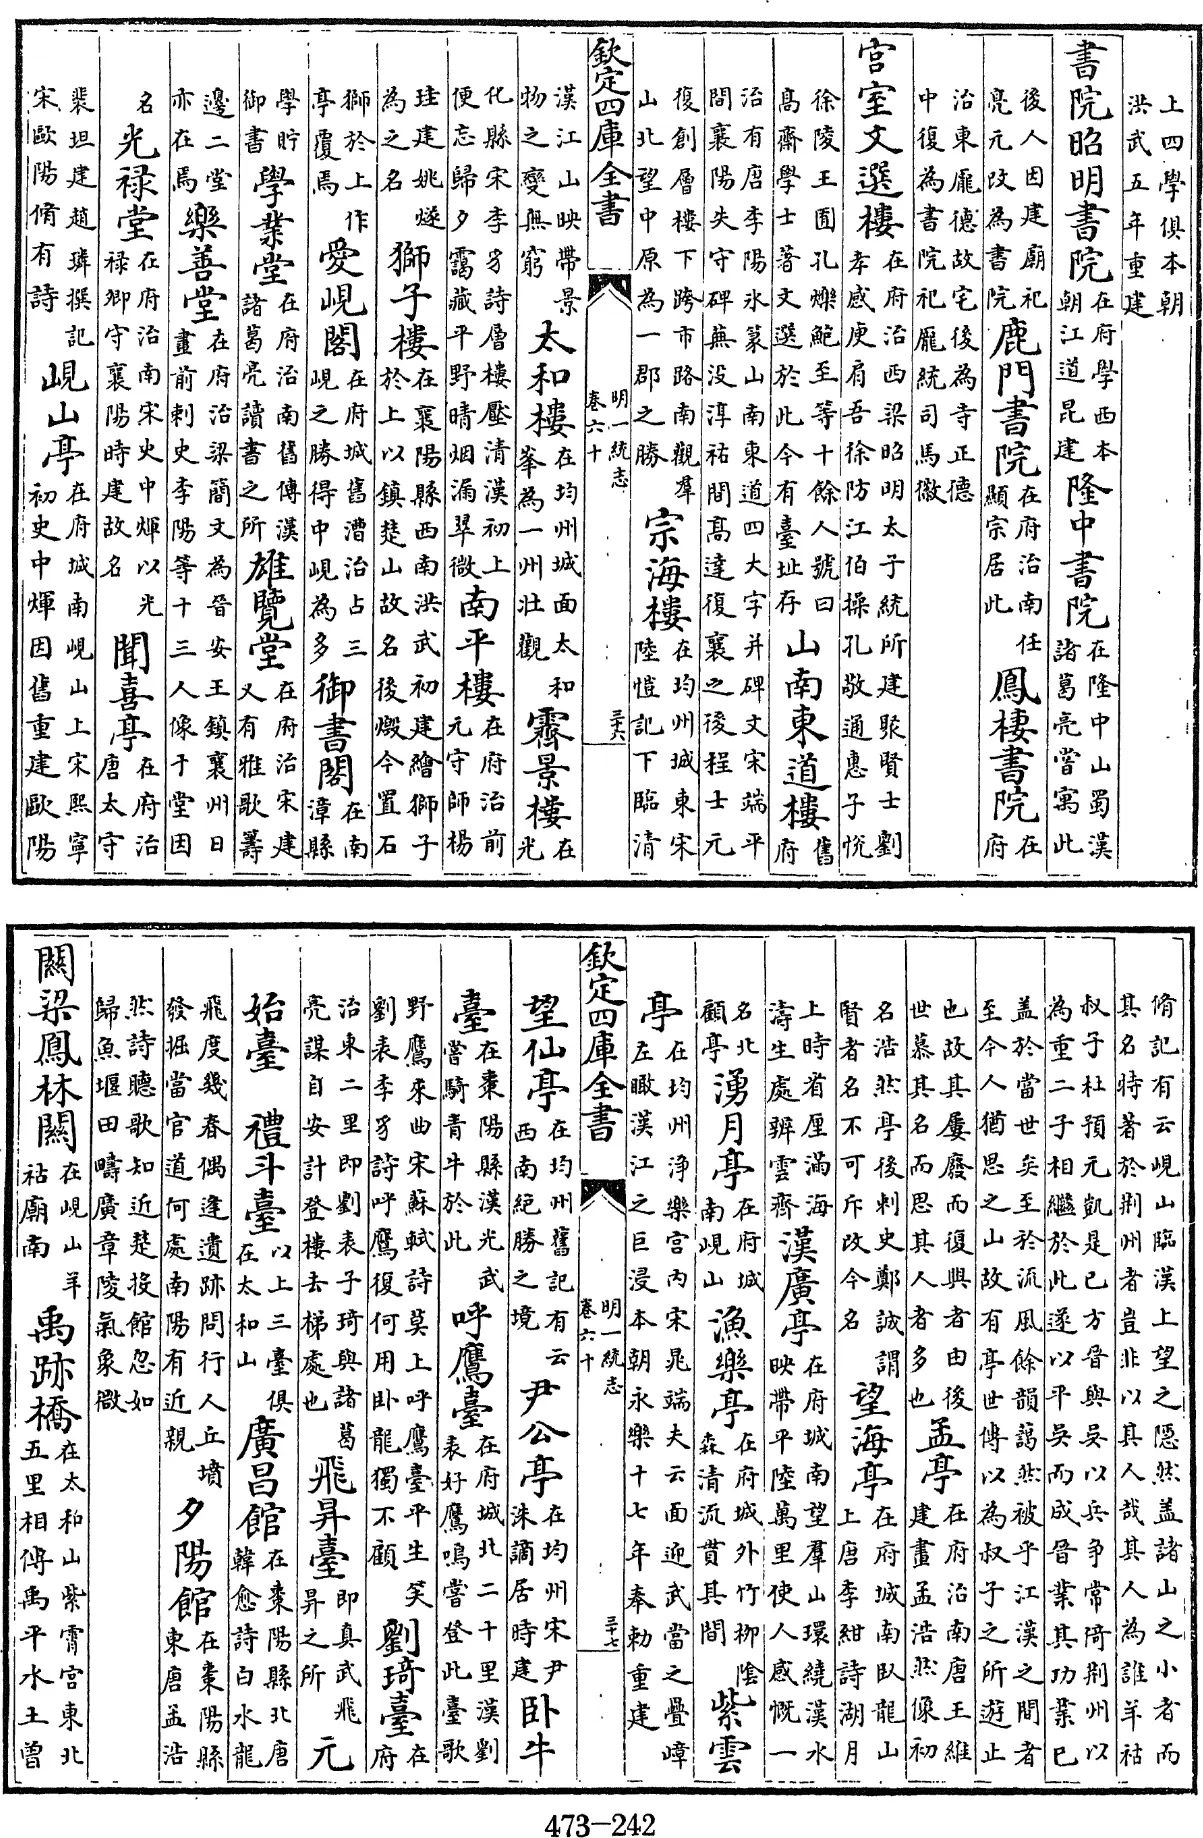 上四學俱本朝洪武五年重建
書院昭明書院在府學西本朝江道昆建隆中書院在隆中山蜀漢諸葛亮嘗寓此
後人因建廟祀亮元改為書院鹿門書院在府治南任顯宗居此鳳棲書院在府
治東龎德故宅後為寺正德中復為書院祀龎統司馬徽
宮室文選樓在府治西梁昭明太子統所建聚賢士劉孝感庾肩吾徐防江伯操孔敬通惠子悅
徐陵王囿孔爍鮑至等十餘人號曰髙齋學士著文選於此今有臺址存山南東道樓舊府
治有唐李陽氷篆山南東道四大字并碑文宋端平間襄陽失守碑蕪没淳祐間髙達復襄之後程士元
復創層樓下跨市路南觀羣山北望中原為一郡之勝宗海樓在均州城東宋陸愷記下臨清
欽定四庫全書 明一統志卷六十 三十六
漢江山映帶景物之變無窮太和樓在均州城面太和峯為一州壯觀霽景樓在光
化縣宋李豸詩層樓壓清漢初上便忘歸夕靄藏平野晴烟漏翠微南平樓在府治前元守師楊
珪建姚燧為之名獅子樓在襄陽縣西南洪武初建繪獅子於上以鎮楚山故名後燬今置石
獅於上作亭覆焉愛峴閣在府城舊漕治占三峴之勝得中峴為多御書閣在南漳縣
學貯御書學業堂在府治南舊傳漢諸葛亮讀書之所雄覽堂在府治宋建又有雅歌籌
邊二堂亦在焉樂善堂在府治梁簡文為晉安王鎮襄州日畫前刺史李陽等十三人像于堂因
名光祿堂在府治南宋史中煇以光祿卿守襄陽時建故名聞喜亭在府治唐太守
裴坦建趙璘撰記宋歐陽脩有詩峴山亭在府城南峴山上宋熙寧初史中煇因舊重建歐陽
脩記有云峴山臨漢上望之隠然盖諸山之小者而其名特著於荆州者豈非以其人哉其人為誰羊祜
叔子杜預元凱是已方晉與吳以兵争常倚荆州以為重二子相繼於此遂以平吳而成晉業其功業已
盖於當世矣至於流風餘韻藹然被乎江漢之間者至今人猶思之山故有亭世傳以為叔子之所遊止
也故其屢廢而復興者由後世慕其名而思其人者多也孟亭在府治南唐王維建畫孟浩然像初
名浩然亭後刺史鄭諴謂賢者名不可斥改今名望海亭在府城南臥龍山上唐李紳詩湖月
上時省厘滿海濤生處辨雲齊漢廣亭在府城南望羣山環繞漢水映帶平陸萬里使人感慨一
名北顧亭湧月亭在府城南峴山漁樂亭在府城外竹栁陰森清流貫其間紫雲
亭在均州浄樂宫内宋晁端夫云面迎武當之疊嶂左瞰漢江之巨浸本朝永樂十七年奉勅重建
欽定四庫全書 明一統志卷六十 三十七
望仙亭在均州舊記有云西南絕勝之境尹公亭在均州宋尹洙謫居時建卧牛
臺在棗陽縣漢光武嘗騎青牛於此呼鷹臺在府城北二十里漢劉表好鷹鳴嘗登此臺歌
野鷹來曲宋蘇軾詩莫上呼鷹臺平生笑劉表李豸詩呼鷹復何用卧龍獨不顧劉琦臺在府
治東二里即劉表子琦與諸葛亮謀自安計登樓去梯處也飛昇臺即真武飛昇之所元
始臺禮斗臺以上三臺俱在太和山廣昌館在棗陽縣北唐韓愈詩白水龍
飛度幾春偶逢遺跡問行人丘墳發掘當官道何處南陽有近親夕陽館在棗陽縣東唐孟浩
然詩聽歌知近楚投館忽如歸魚堰田疇廣章陵氣象微
關梁鳳林關在峴山羊祜廟南禹跡橋在太和山紫霄宫東北五里相傳禹平水土曾
473-242